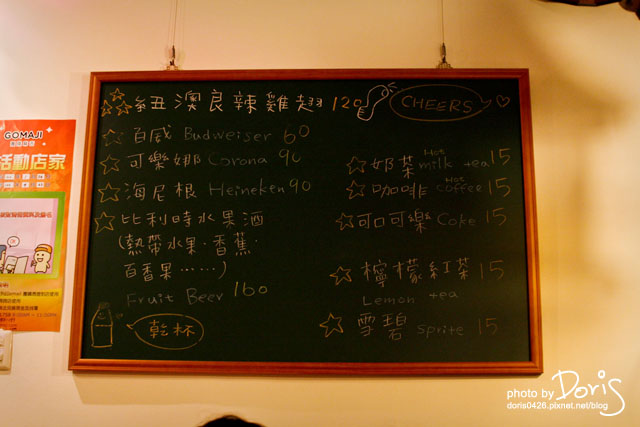 紐澳良辣雞翅 120
CHEERS
百威 Budweiser 60
可樂娜 Corona 90
海尼根 Heineken 90
比利時水果酒
(熱帶水果·香蕉·
百香果……)
Fruit Beer 160
乾杯
Hot
奶茶 milk tea 15
Hot
咖啡 Coffee 15
可口可樂 Coke 15
檸檬紅茶 15
Lemon tea
雪碧 Sprite 15
GOMAJI
活動店家
photo by Doris
doris0426.pixnet.net/blog